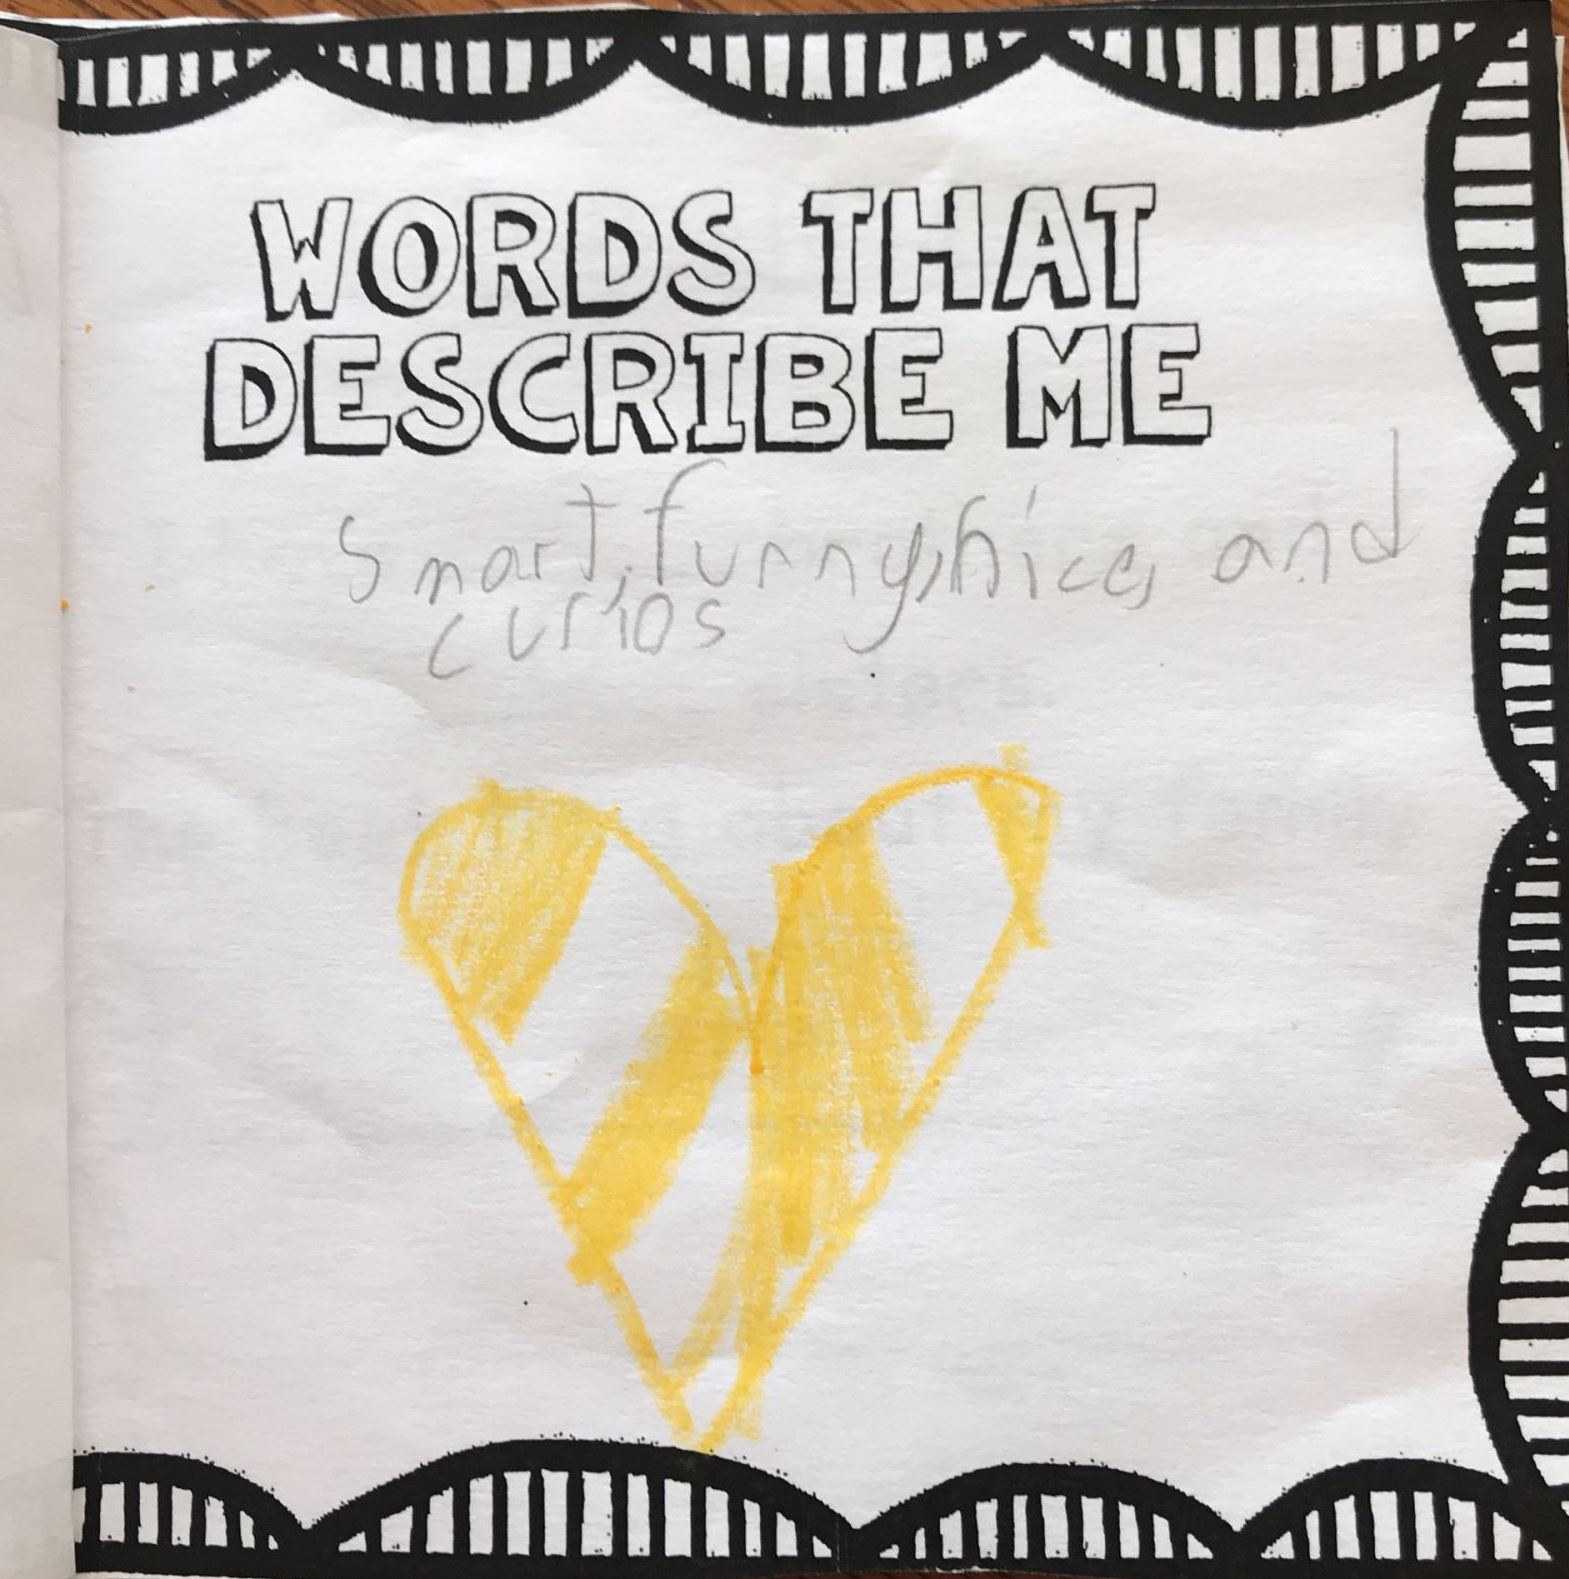 WORDS THAT
DESCRIBE ME
Smart, funny, nice, and
curios